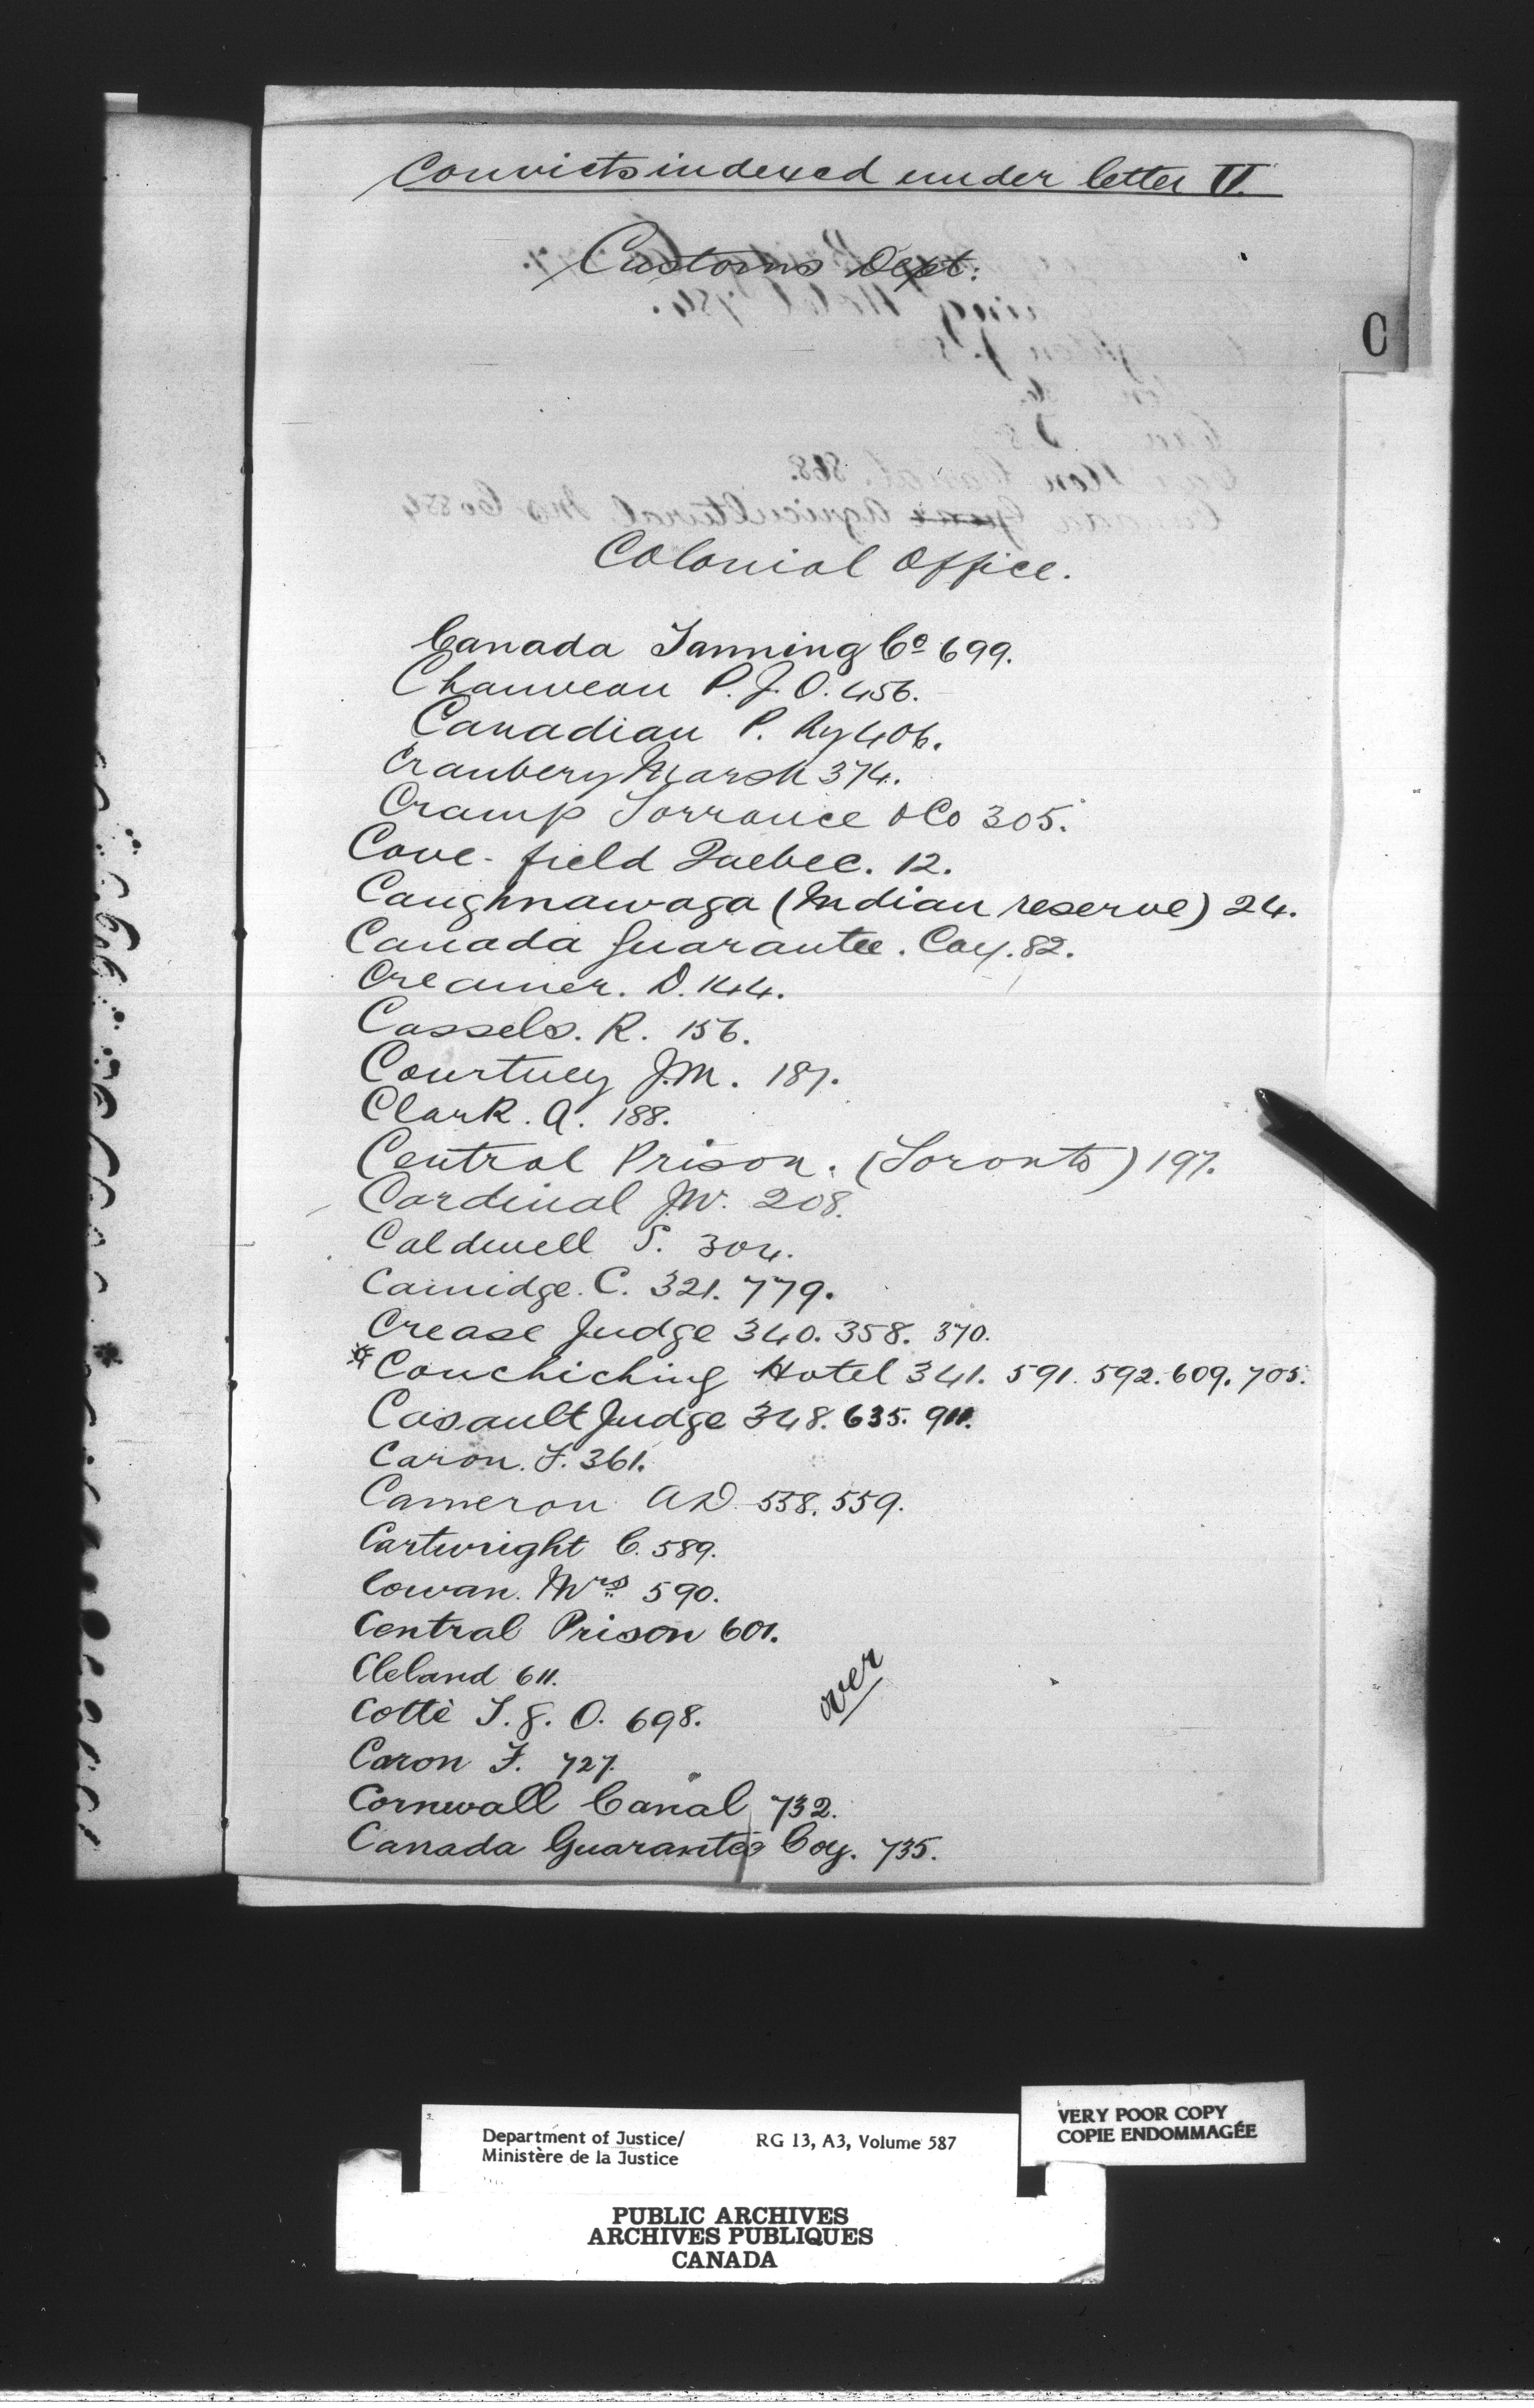 Convicts indexed under letter V.
Customs Dept:
C
Colonial Office.
Canada Tanning Co 699.
Chauveau P. J. O. 456.
Canadian P. Ry 406.
Cranbery Marsh 374.
Cramp Torrance & Co 305.
Cove-field Quebec. 12.
Caughnawaga (Indian reserve) 24.
Canada Guarantee. Coy. 82.
Creamer. D. 144.
Cassels. R. 156.
Courtney J.M. 187.
Clark. A. 188.
Central Prison. (Toronto) 197.
Cardinal J.W. 208.
Caldwell S. 304.
Camidge. C. 321. 779.
Crease Judge 340. 358. 370.
Couchiching Hotel 341. 591. 592. 609. 705.
Casault Judge 348. 635. 911.
Caron. F. 361.
Cameron A D 558. 559.
Cartwright C. 589.
Cowan. Mrs 590.
Central Prison 601.
Cleland 611.
over
Cottè J. g. O. 698.
Caron F. 727.
Cornwall Canal 732.
Canada Guarantee Coy. 735.
Department of Justice/
Ministère de la Justice
RG 13, A3, Volume 587
VERY POOR COPY
COPIE ENDOMMAGÉE
PUBLIC ARCHIVES
ARCHIVES PUBLIQUES
CANADA